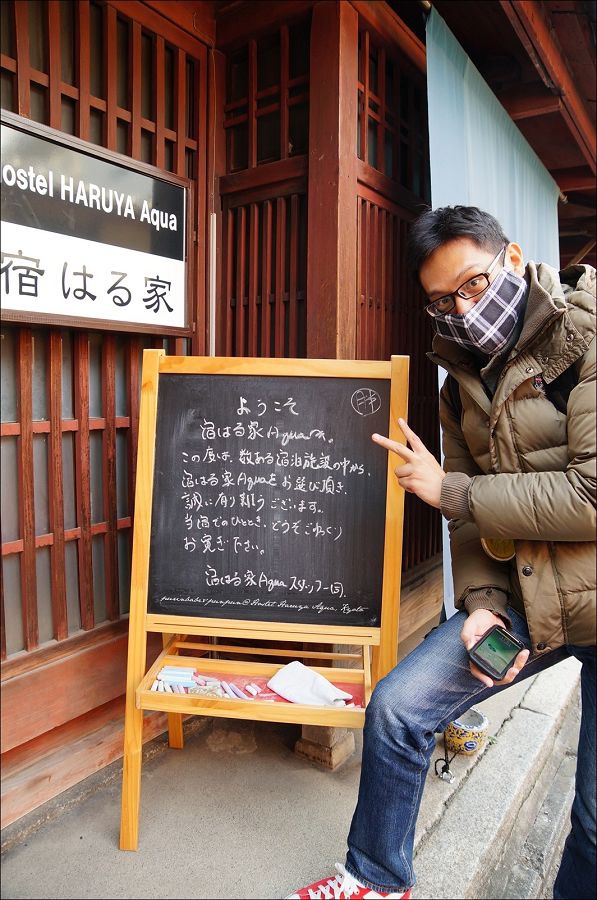 ostel HARUYA Aqua
宿はる家
ようこそ
日本
宿はる家Aquaへ。
この度は、数ある宿泊施設の中から、
宿はる家Aquaをお選び頂き、
誠に有り難うございます。
当宿でのひととき、どうぞごゆっくり
お寛ぎ下さい。
宿はる家Aquaスタッフ一同
pussnbabe♥punpun@Hostel Haruya Aqua, Kyoto